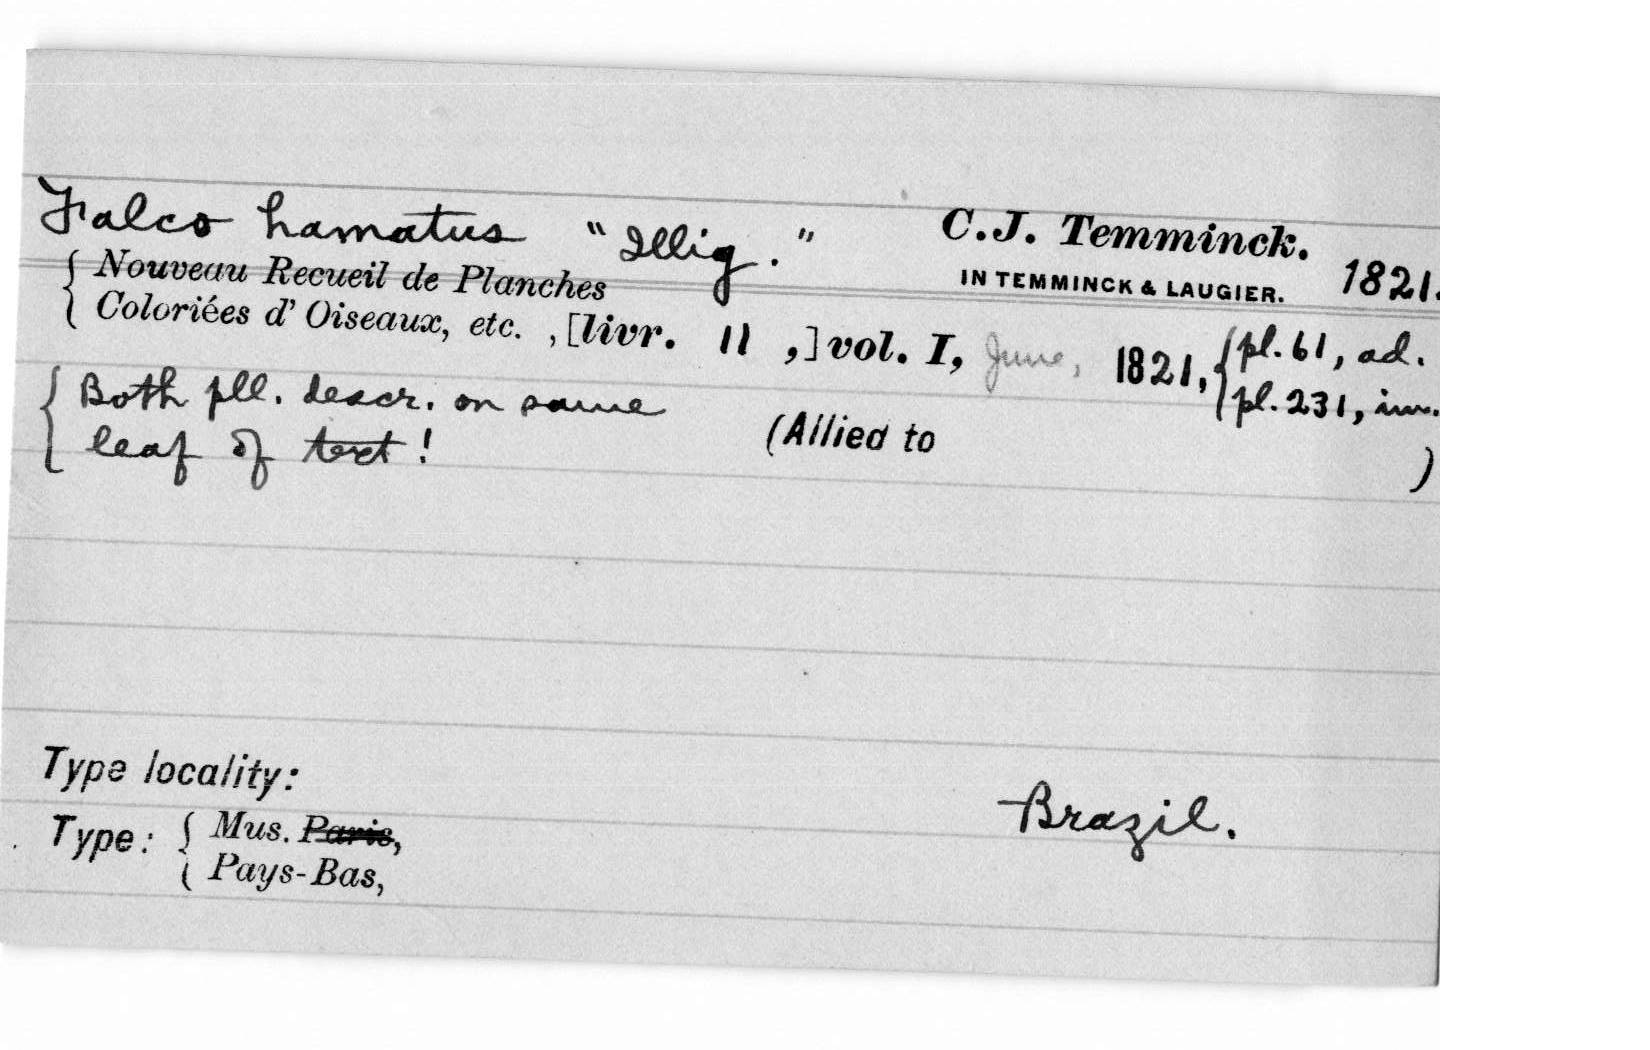 Falco hamatus "Illig." C.J. Temminck.
IN TEMMINCK & LAUGIER. 1821.
{ Nouveau Recueil de Planches
{ Coloriées d' Oiseaux, etc. , [livr. 11 ,] vol. I, June, 1821, { pl. 61, ad.
{ pl. 231, im.
{ Both pll. descr. on same
{ leaf of text!
(Allied to )
Type locality:
Brazil.
Type: { Mus. Paris,
{ Pays-Bas,